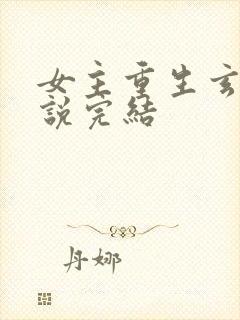 女主重生玄
說完結
丹娜